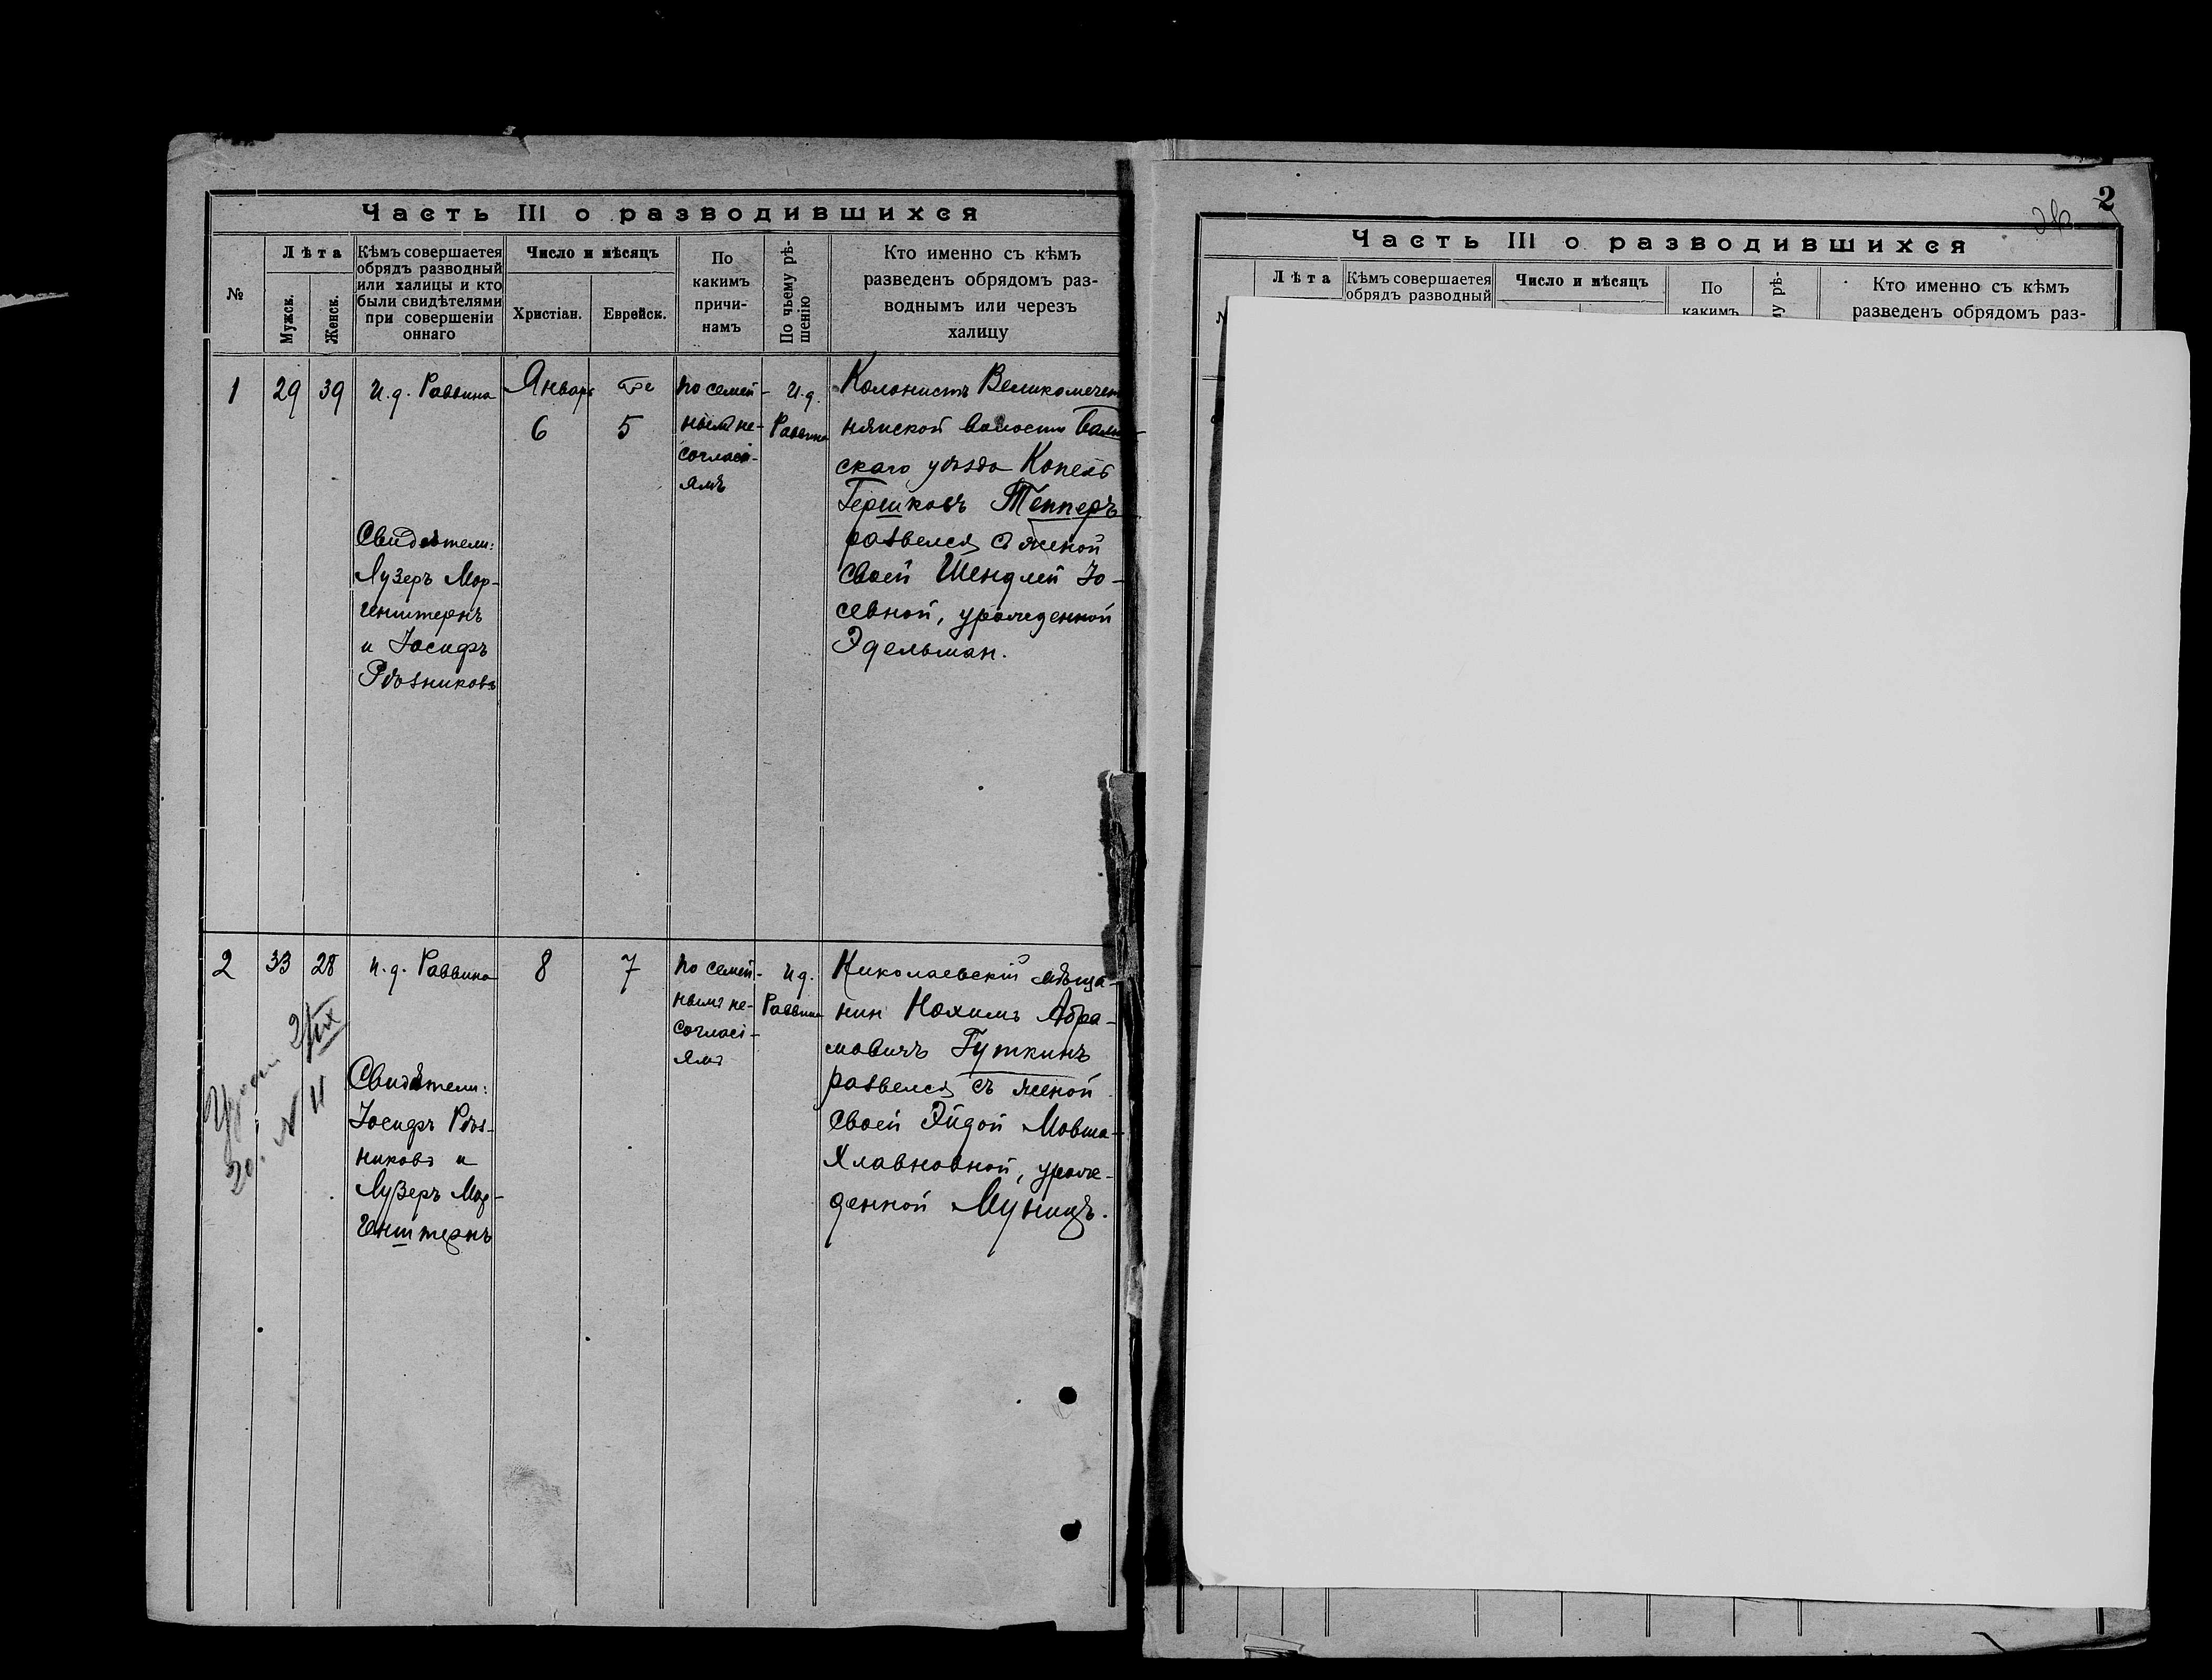 Часть III о разводившихся
№
Лѣта
Мужск.
Женск.
Кѣмъ совершается
обрядъ разводный
или халицы и кто
были свидѣтелями
при совершеніи
оннаго
Число и мѣсяцъ
Христіан.
Еврейск.
По
какимъ
причи-
намъ
По чьему рѣ-
шенію
Кто именно съ кѣмъ
разведенъ обрядомъ раз-
воднымъ или черезъ
халицу
1
29
39
И.д. Раввина
Свидѣтели:
Лузеръ Мор-
генштернъ
и Іосифъ
Рѣзниковъ
Январь
6
5
по семей-
нымъ не-
согласі-
ямъ
И.д.
Раввина
Колонистъ Великомечет
нянской волости Балт
скаго уѣзда Копель
Гершковъ Теплеръ
развелся съ женой
своей Шендлей Іо-
севной, урожденной
Эдельман.
2
33
28
И.д. Раввина
Свидѣтели:
Іосифъ Рѣз-
никовъ и
Лузеръ Мор-
генштернъ
8
7
по семей-
нымъ не-
согласі-
ямъ
И.д.
Раввина
Николаевскій мѣща-
нин Нохимъ Абра-
мовичъ Гуткинъ
развелся съ женой
своей Эйдой Мовша-
Хлавновной, урож-
денной Муницъ.
№ 11
2
Часть III о разводившихся
Лѣта
Кѣмъ совершается
обрядъ разводный
Число и мѣсяцъ
По
какимъ
му рѣ-
Кто именно съ кѣмъ
разведенъ обрядомъ раз-